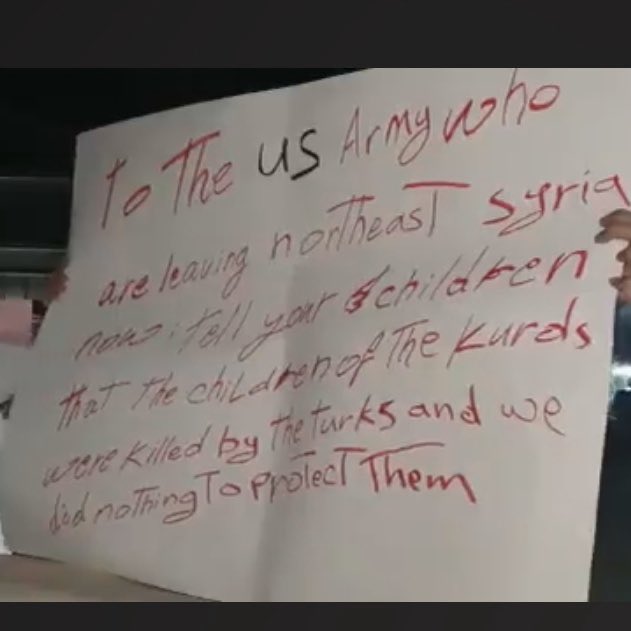 To The US Army who
are leaving northeast syria
now: tell your children
that the children of The Kurds
were killed by the Turks and we
did nothing To protect Them